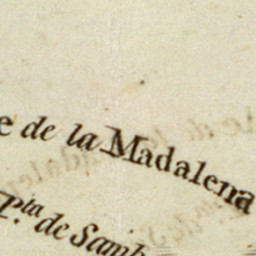 e de la Madalena
P.ta de Samb